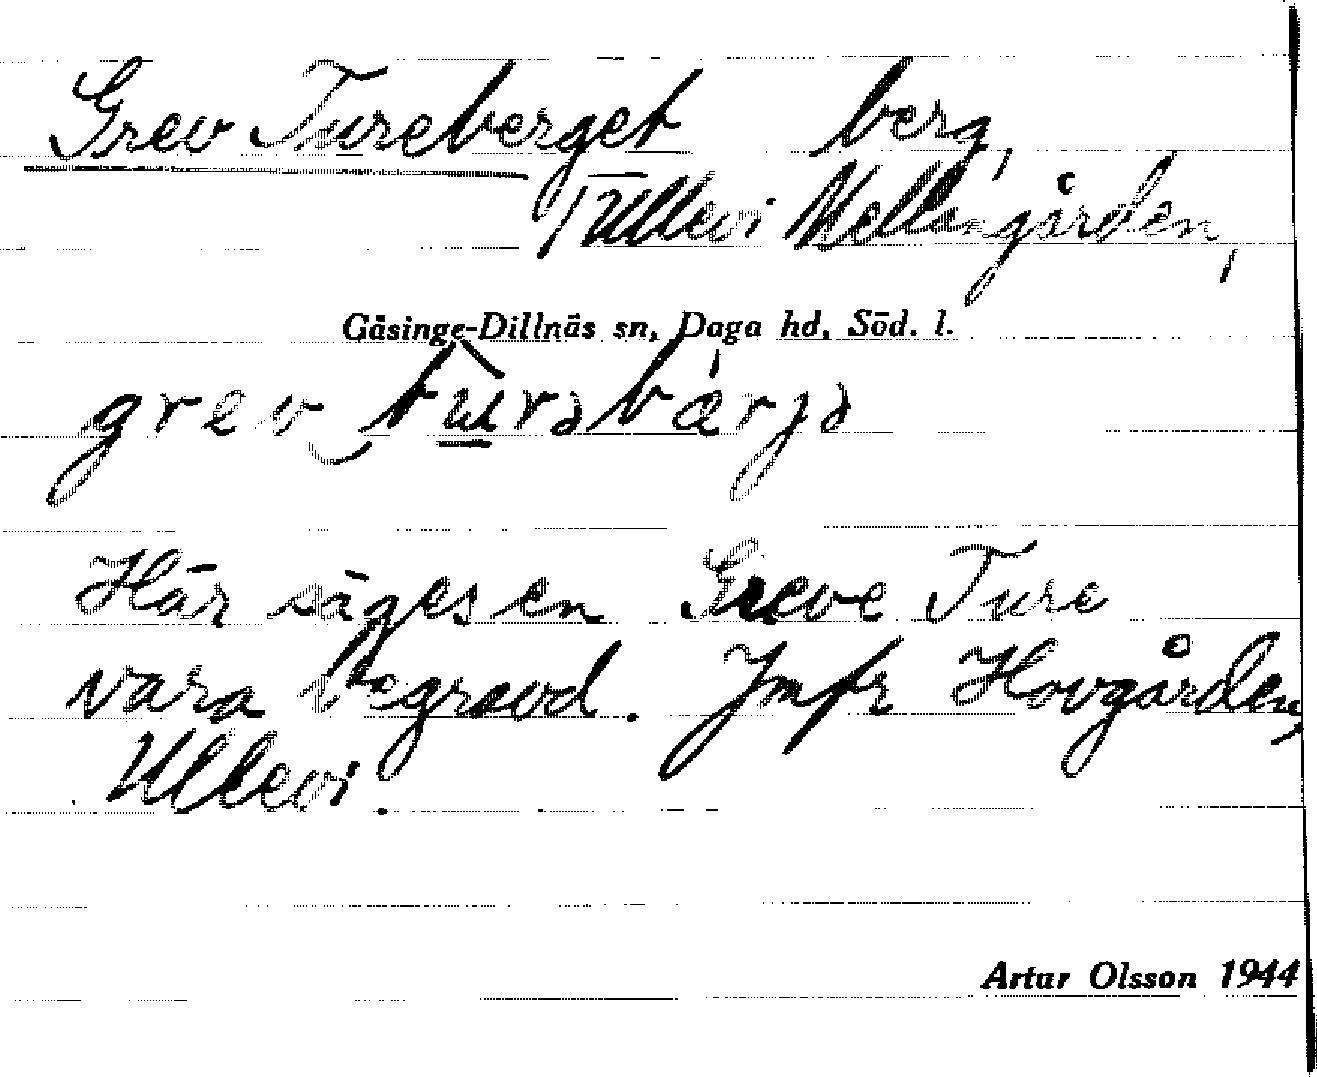 Grev Tureberget berg,
Ullevi Mellangården,
Gåsinge-Dillnäs sn, Daga hd, Söd. l.
grev tu̲rəbærjə
Här säges en Greve Ture
vara begravd. Jmfr Hovgården,
Ullevi.
Artur Olsson 1944